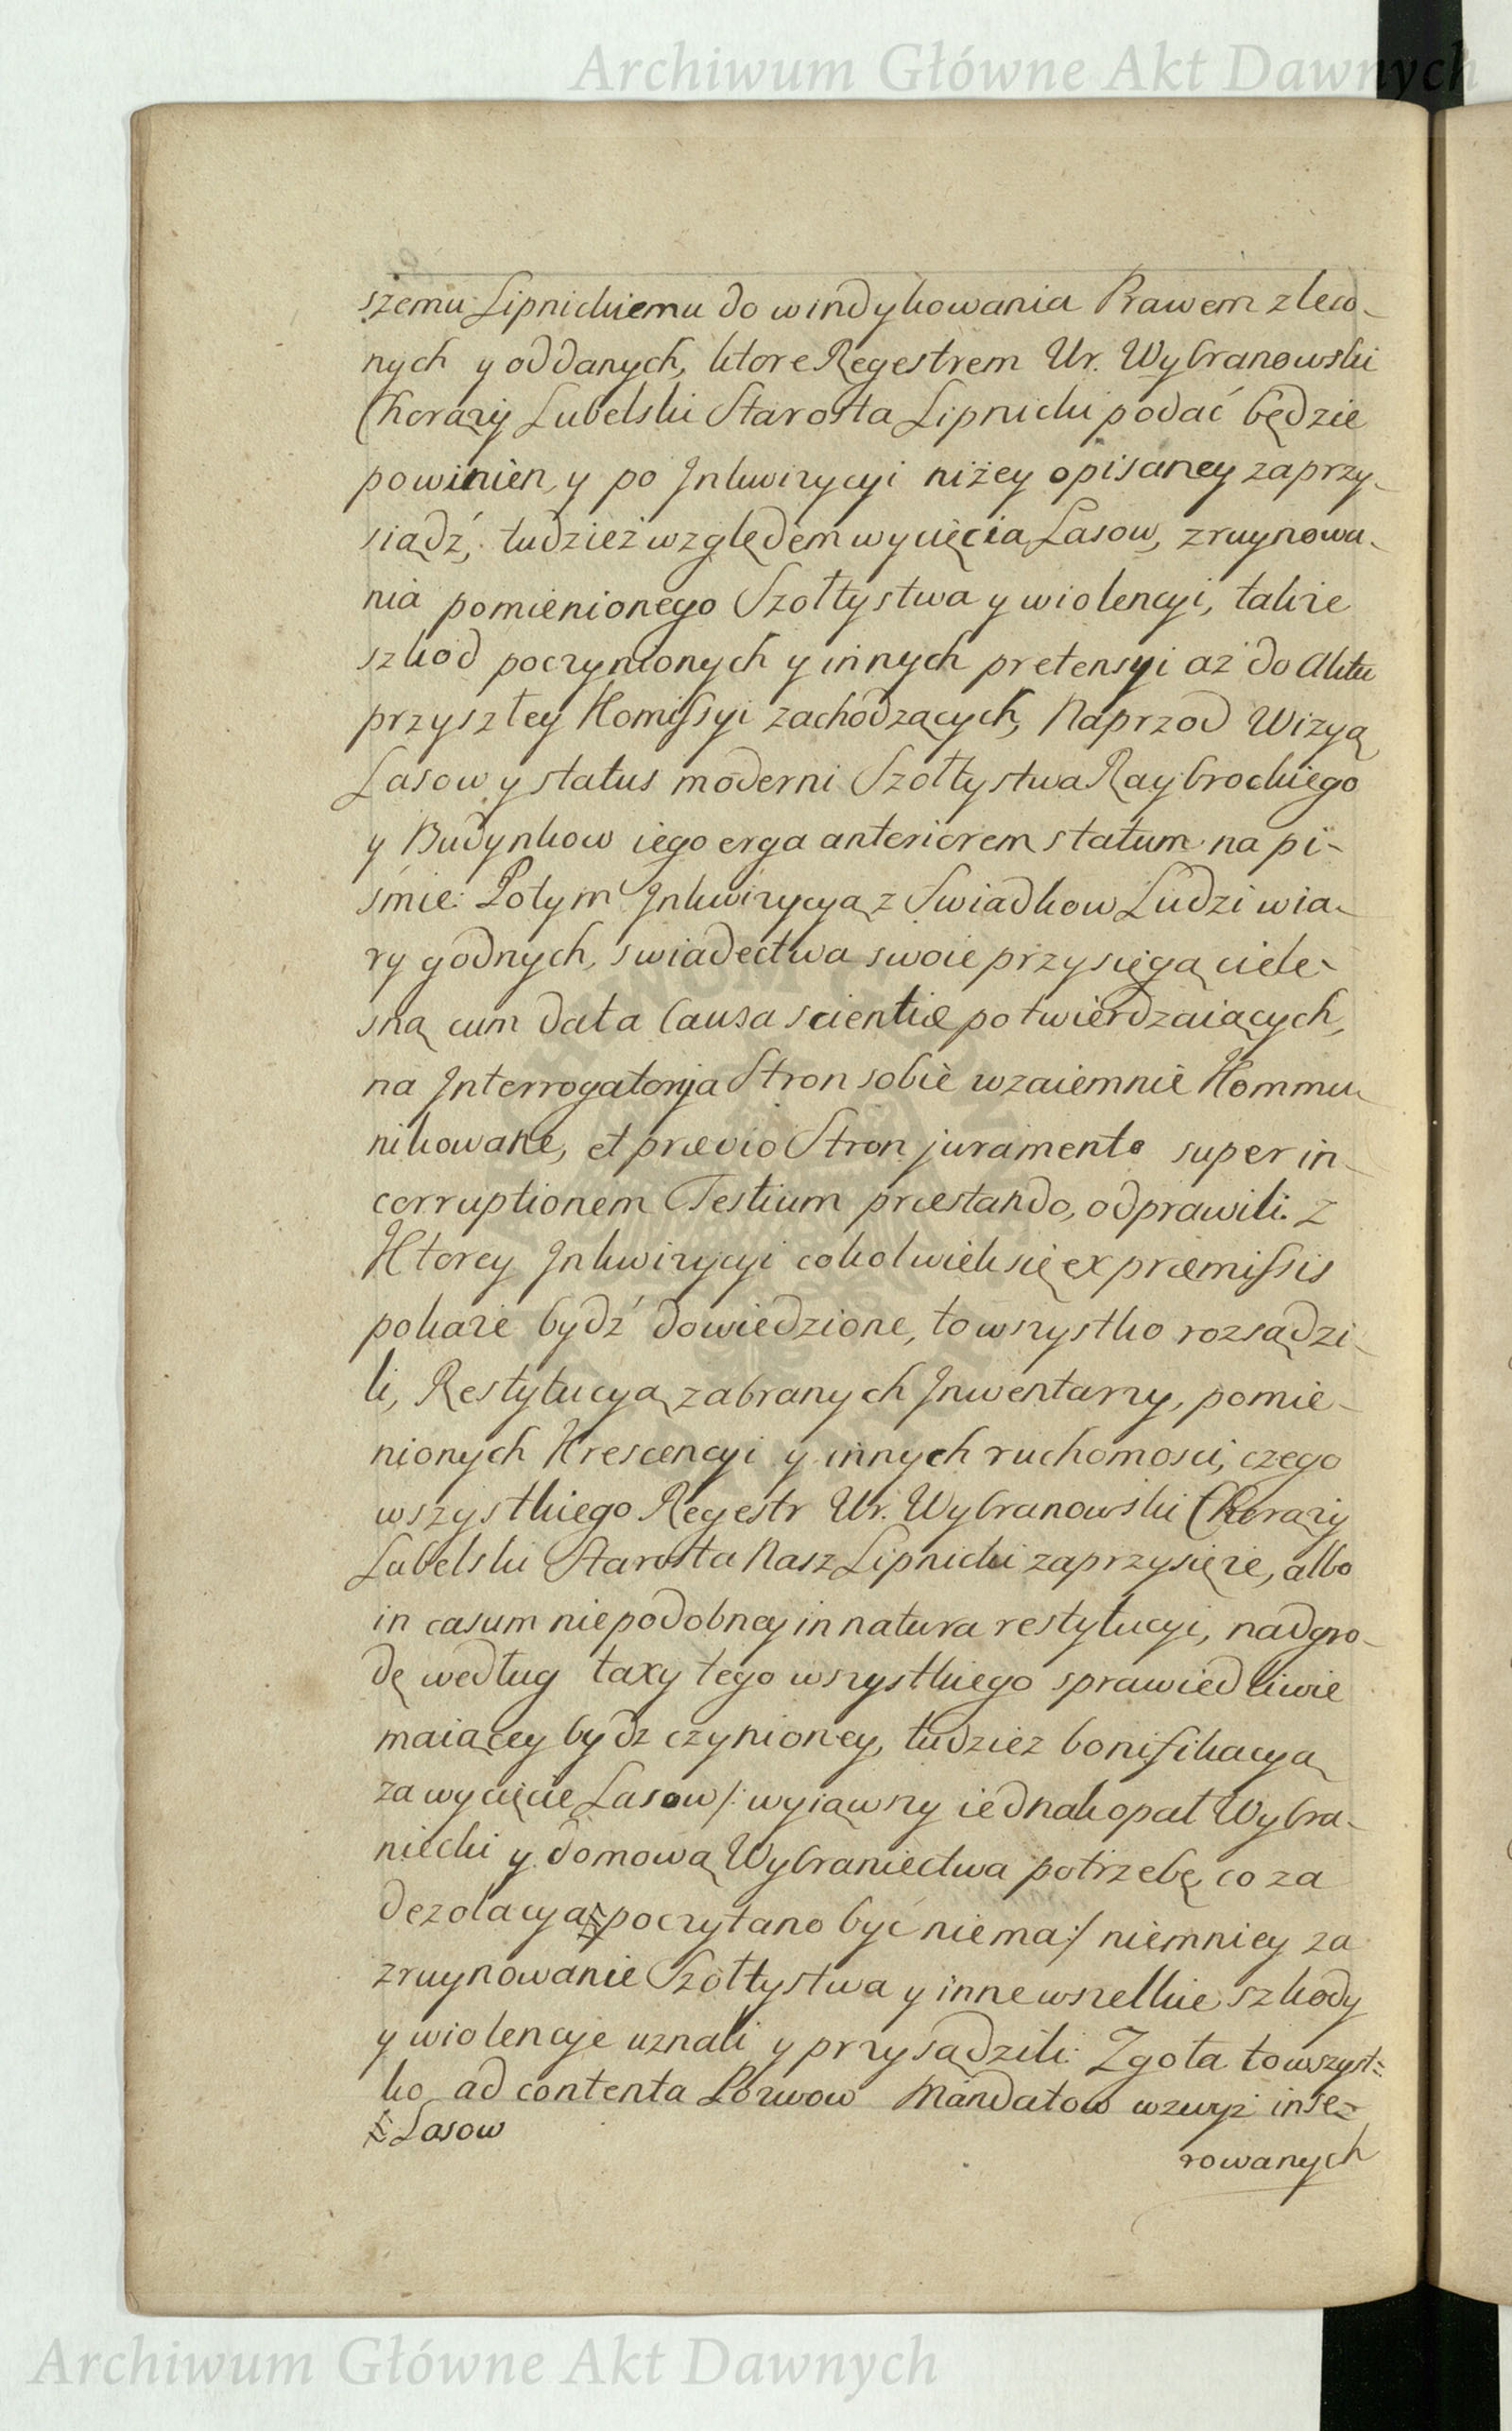 Archiwum Główne Akt Dawnych
szemu Lipnickiemu do windykowania Prawem zleco-
nych y oddanych, ktore Regestrem Ur. Wybranowski
Chorąży Lubelski Starosta Lipnicki podać będzie
powinien, y po Inkwizycyi niżey opisaney zaprzy-
siądź, tudzież względem wycięcia Lasow, zruynowa-
nia pomienionego Szołtystwa y wiolencyi, także
szkod poczynionych y innych pretensyi aż do Aktu
przyszłey Kommissyi zachodzących, Naprzod Wizyą
Lasow y status moderni Szołtystwa Raybrockiego
y Budynkow iego erga anteriorem statum na pi-
śmie: Potym Inkwizycyą z Swiadkow Ludzi wia-
ry godnych, swiadectwa swoie przysięgą ciele-
sną cum data Causa scientiæ potwierdzaiących,
na Interrogatorya Stron sobie wzaiemnie Kommu-
nikowane, et prævio Stron juramento super in-
corruptionem Testium præstando, odprawili. Z
Ktorey Inkwizycyi cokolwiek się ex præmissis
pokaże bydź dowiedzione, to wszystko rozsądzi-
li, Restytucyą zabranych Inwentarzy, pomie-
nionych Krescencyi y innych ruchomosci, czego
wszystkiego Regestr Ur. Wybranowski Chorąży
Lubelski Starosta Nasz Lipnicki zaprzysięże, albo
in casum niepodobney in natura restytucyi, nadgro-
dę według taxy tego wszystkiego sprawiedliwie
maiącey bydz czynioney, tudziez bonifikacyą
za wycięcie Lasow /: wyiąwszy iednak opał Wybra-
niecki y domową Wybraniectwa potrzebę, co za
dezolacyą # poczytano być niema :/ niemniey za
zruynowanie Szołtystwa y inne wszelkie szkody
y wiolencye uznali y przysądzili: Zgoła to wszyst=
ko ad contenta Pozwow Mandatow wzwyż inse=
# Lasow
rowanych
Archiwum Główne Akt Dawnych